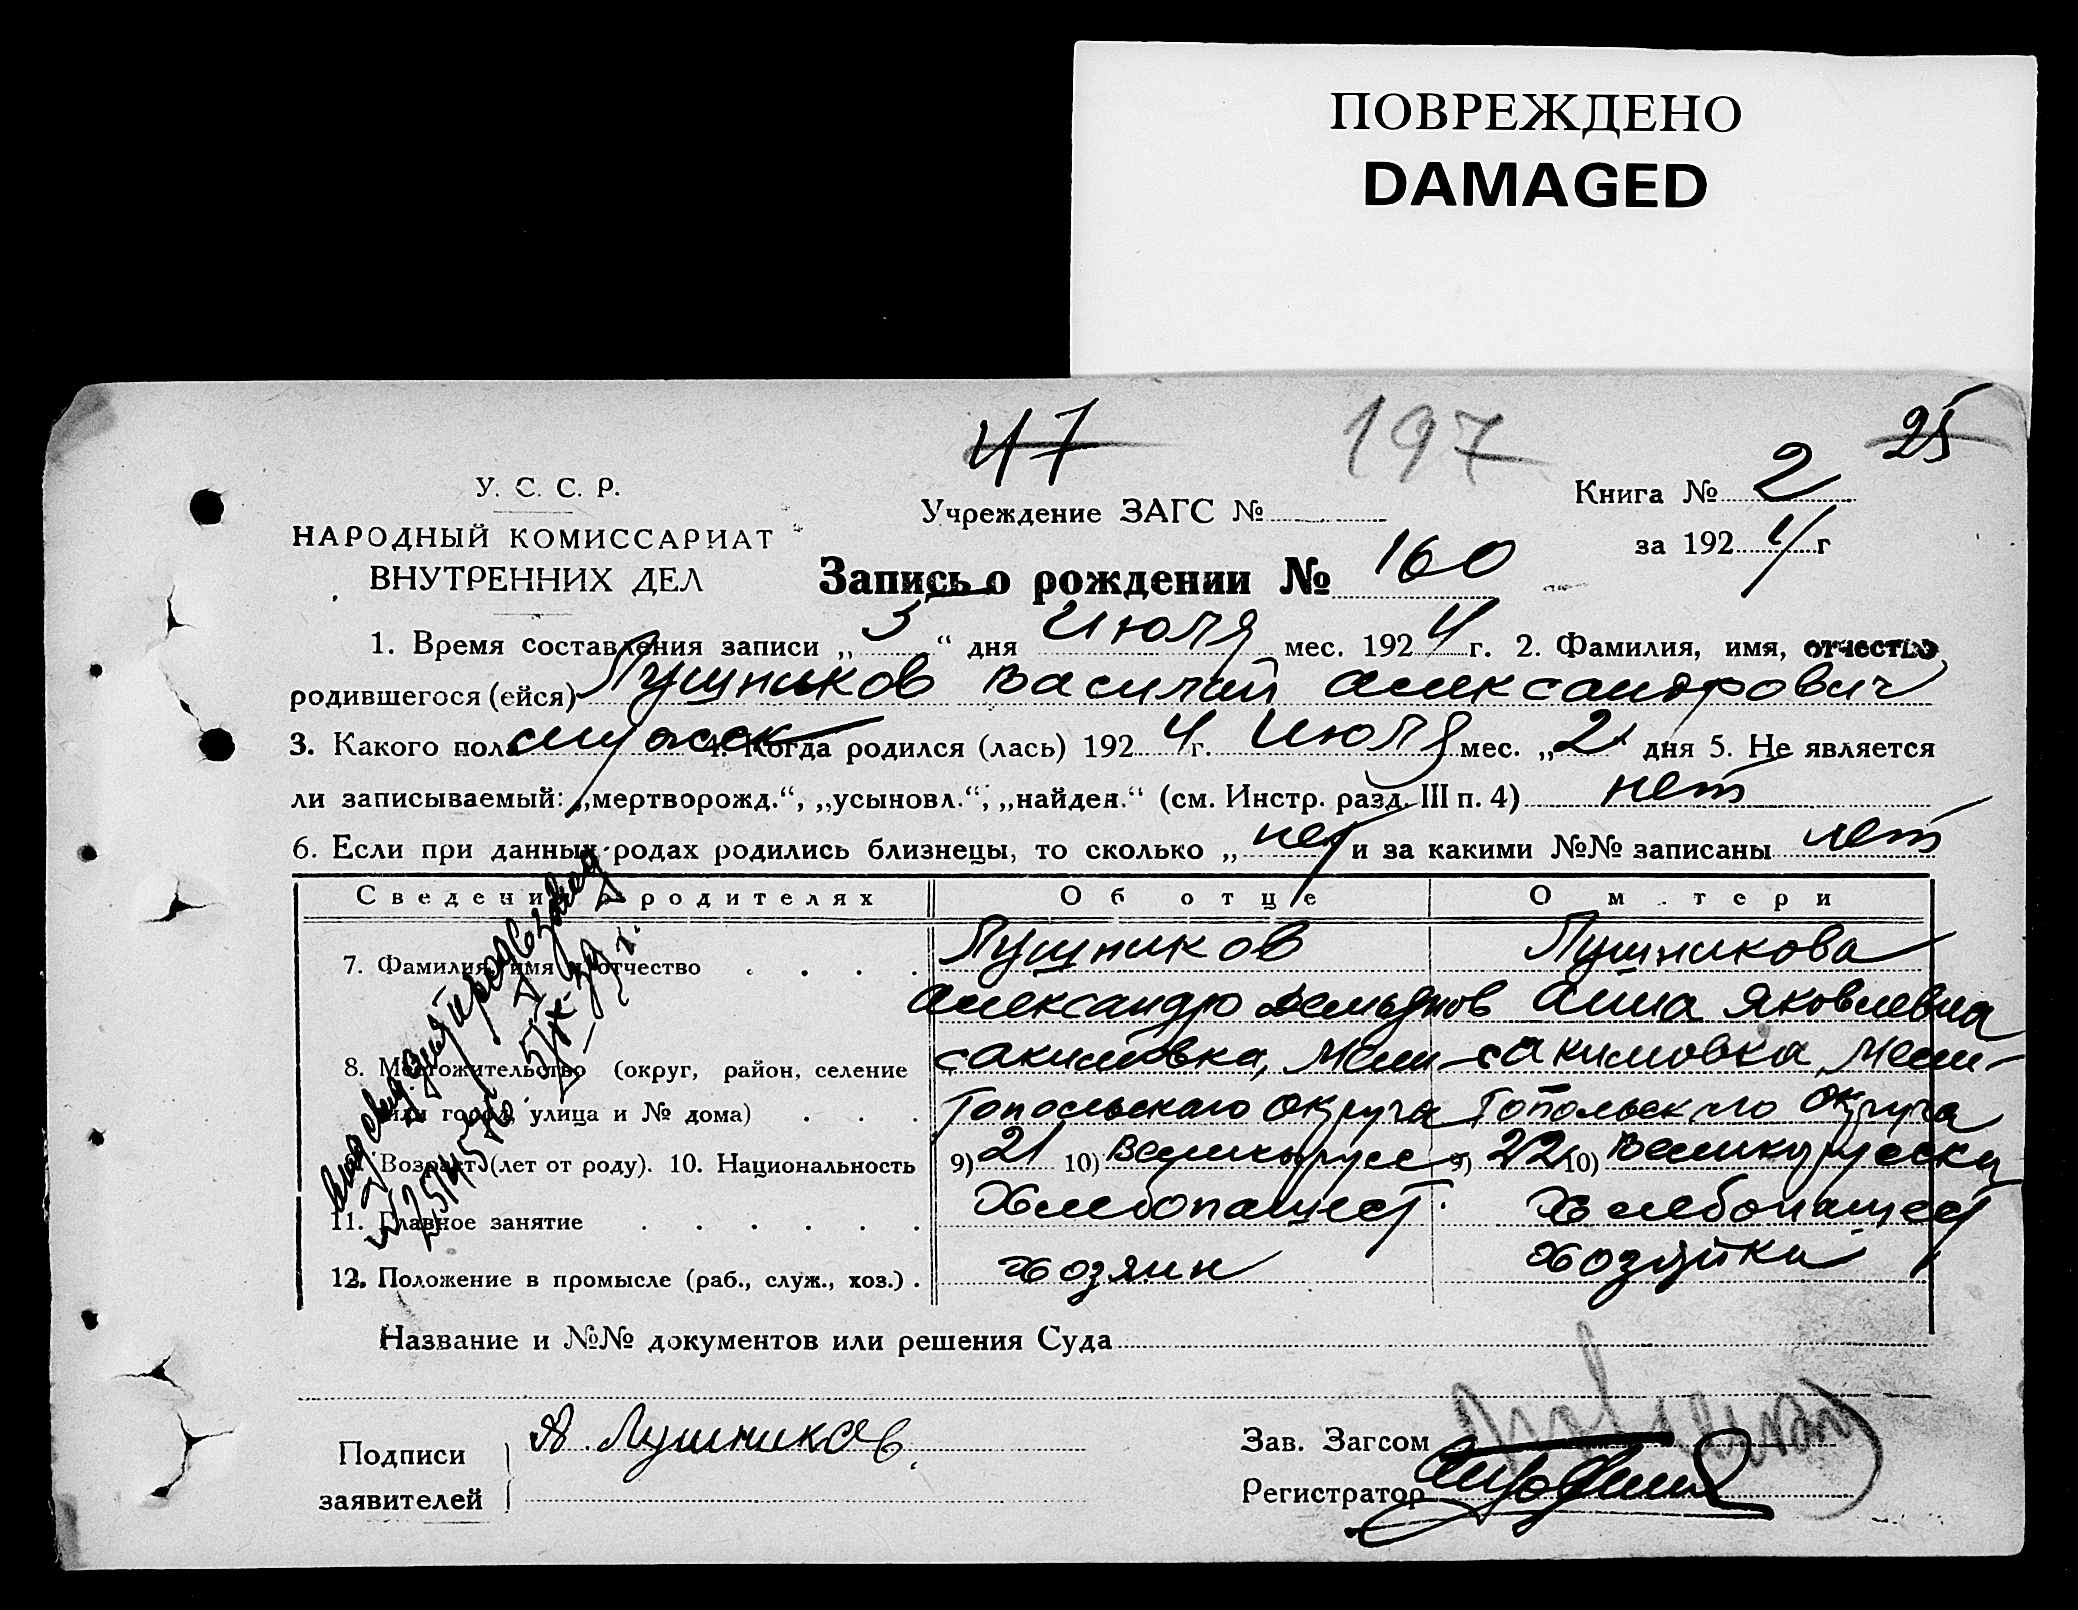 ПОВРЕЖДЕНО
DAMAGED
47
197
25
У. С. С. Р.
НАРОДНЫЙ КОМИССАРИАТ
ВНУТРЕННИХ ДЕЛ
Учреждение ЗАГС №
Книга № 2
за 1924 г
Запись о рождении № 160
1. Время составления записи „ 5 “ дня Июля мес. 1924 г. 2. Фамилия, имя, отчество
родившегося (ейся) Лушников Василий Александрович
3. Какого пола мужск 4. Когда родился (лась) 1924 г. Июля мес. „ 2 дня 5. Не является
ли записываемый: „мертворожд.“, „усыновл.“, „найден.“ (см. Инстр. разд. III п. 4) нет
6. Если при данных родах родились близнецы, то сколько „ нет и за какими №№ записаны нет
Сведения о родителях Об отце О м тери
7. Фамилия, имя и отчество Лушников Лушникова
Александр Демьянов Анна Яковлевна
8. Местожительство (округ, район, селение Акимовка, Мели- Акимовка, Мели-
или город, улица и № дома) топольского округа топольского округа
Возраст (лет от роду). 10. Национальность 9) 21 10) Великорусс 9) 22 10) Великорусска
11. Главное занятие Хлебопашест Хлебопашест
12. Положение в промысле (раб., служ., хоз.) хозяин хозяйка
Название и №№ документов или решения Суда
Подписи
заявителей
А. Лушников
Зав. Загсом
Регистратор